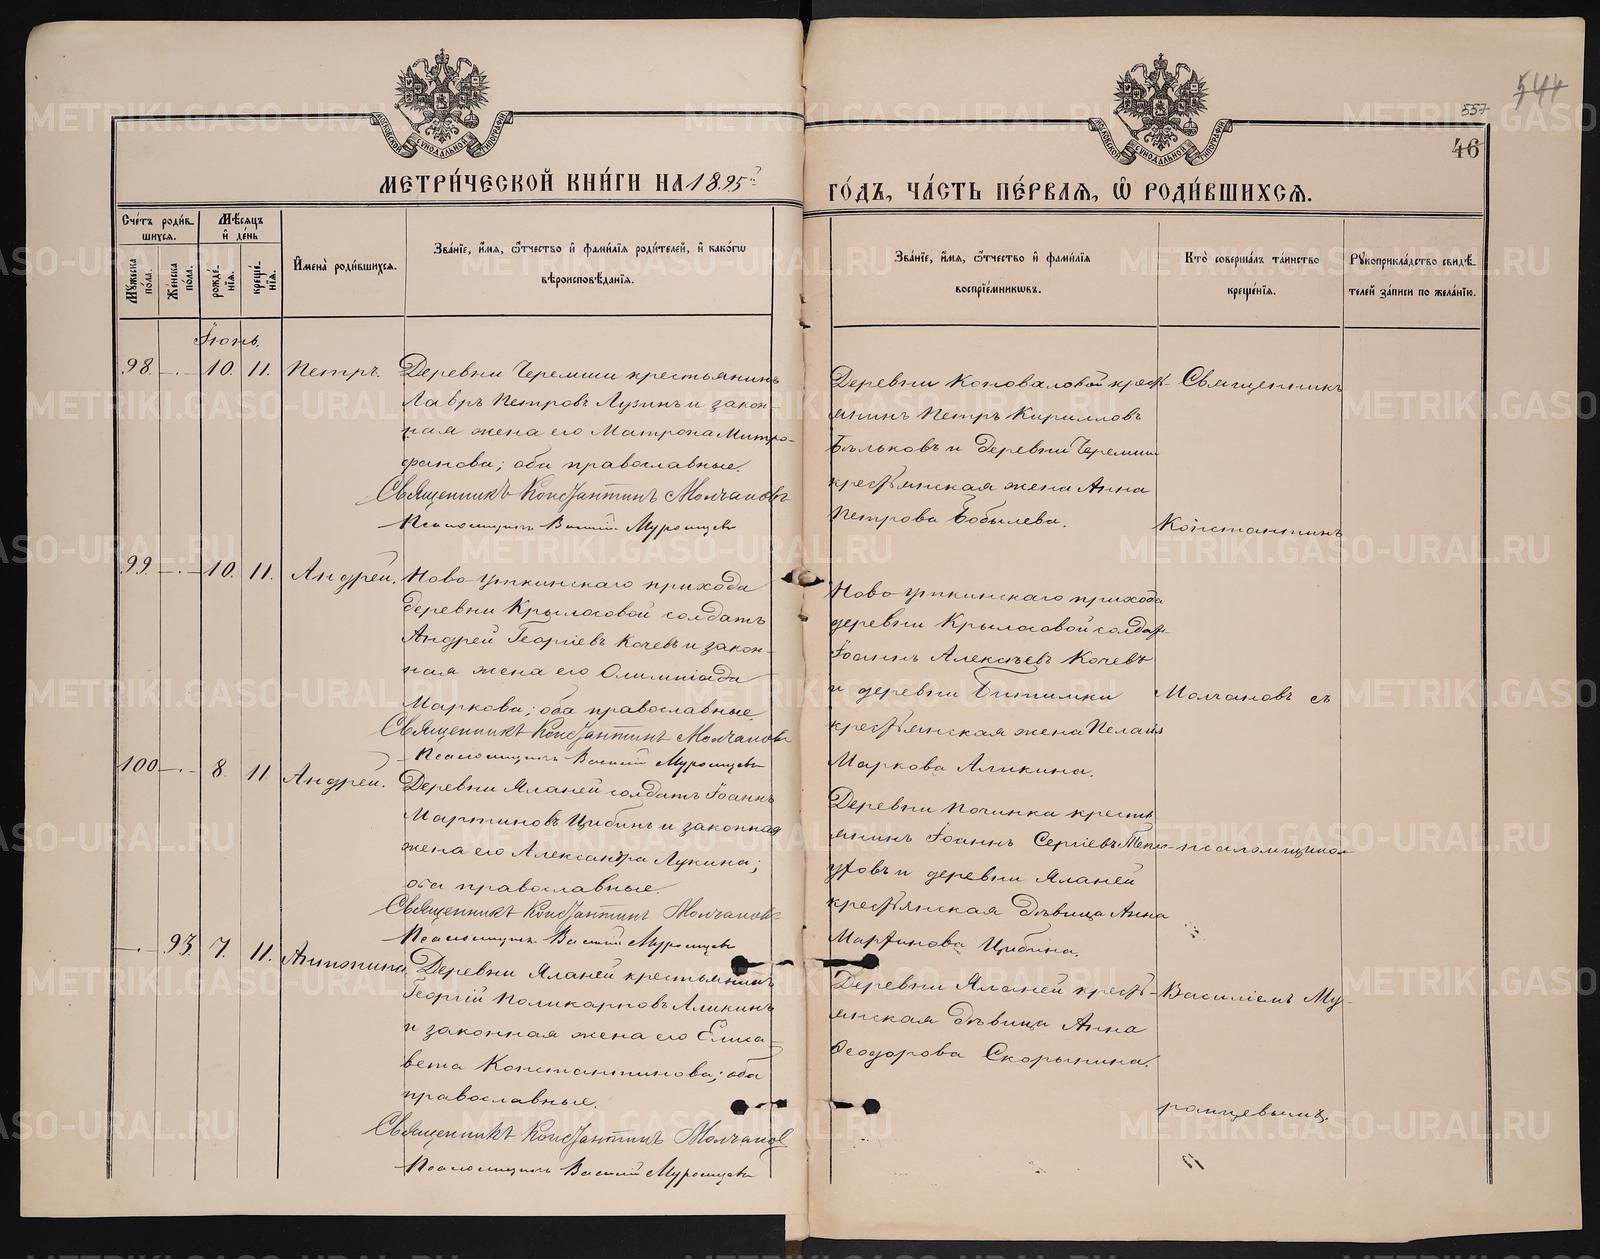 544
557
46
МОСКОВСКОЙ СѴНОДАЛЬНОЙ ТИПОГРАФІИ
МОСКОВСКОЙ СѴНОДАЛЬНОЙ ТИПОГРАФІИ
МЕТРИ́ЧЕСКОЙ КНИ́ГИ НА 1895й
ГО́ДЪ, ЧА́СТЬ ПЕ́РВАЯ, Ѽ РОДИ́ВШИХСЯ.
Сче́тъ роди́в-
шихся.
Му́жеска по́ла.
Же́нска по́ла.
Мѣ́сяцъ
и҆ де́нь
рожде́-
нїя.
креще́-
нїя.
И҆мена̀ роди́вшихся.
Зва́нїе, и҆́мя, ѻ҆́тчество и҆ фами́лїя роди́телей, и҆ како́гѡ
вѣроисповѣ́данїя.
Зва́нїе, и҆́мя, ѻ҆́тчество и҆ фами́лїя
воспрїе́мниковъ.
Кто̀ соверша́лъ та́инство
креще́нїя.
Рꙋкоприкла́дство свидѣ́-
телей за́писи по жела́нїю.
Іюнь.
98. — 10. 11. Петръ.
Деревни Черемши крестьянинъ
Лавръ Петровъ Лузинъ и закон-
ная жена его Матрона Митро-
фанова; оба православные.
Священникъ Константинъ Молчановъ
Псаломщикъ Василій Муромцевъ
Деревни Коноваловой крест-
янинъ Петръ Кирилловъ
Бѣльковъ и деревни Черемши
крестьянская жена Анна
Петрова Бобылева.
Священникъ
Константинъ
99. — 10. 11. Андрей.
Ново-уткинскаго прихода
деревни Крыласовой солдатъ
Андрей Георгіевъ Кочевъ и закон-
ная жена его Олимпіада
Маркова; оба православные.
Священникъ Константинъ Молчановъ
Псаломщикъ Василій Муромцевъ
Ново-уткинскаго прихода
деревни Крыласовой солдатъ
Іоаннъ Алексѣевъ Кочевъ
и деревни Битимки
крестьянская жена Пелагія
Маркова Аликина.
Молчановъ съ
100 — 8. 11 Андрей.
Деревни Яланей солдатъ Іоаннъ
Мартиновъ Цибинъ и законная
жена его Александра Лукина;
оба православные.
Священникъ Константинъ Молчановъ
Псаломщикъ Василій Муромцевъ
Деревни Починка кресть
янинъ Іоаннъ Сергіевъ
и деревни Яланей
крестьянская дѣвица Анна
Мартинова Цибина.
псаломщиком
— 93. 7. 11. Антонина.
Деревни Яланей крестьянинъ
Георгій Поликарповъ Аликинъ
и законная жена его Елиса-
вета Константинова; оба
православные.
Священникъ Константинъ Молчанов
Псаломщикъ Василій Муромцевъ
Деревни Яланей крест-
янская дѣвица Анна
Ѳеодорова Скорынина.
Василіемъ Му-
ромцевымъ.
METRIKI.GASO-URAL.RU